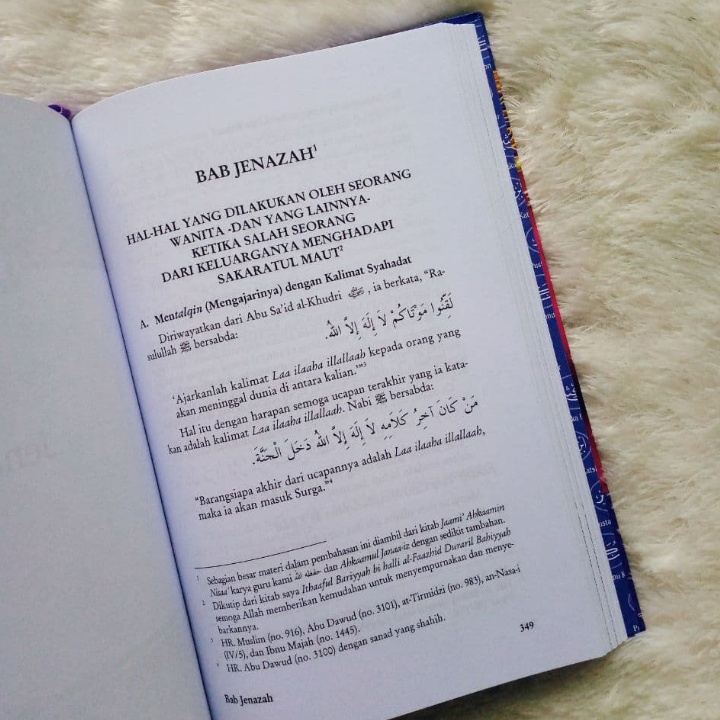 BAB JENAZAH¹
HAL-HAL YANG DILAKUKAN OLEH SEORANG
WANITA -DAN YANG LAINNYA-
KETIKA SALAH SEORANG
DARI KELUARGANYA MENGHADAPI
SAKARATUL MAUT²
A. Mentalqin (Mengajarinya) dengan Kalimat Syahadat
Diriwayatkan dari Abu Sa'id al-Khudri ﷺ, ia berkata, "Ra-
sulullah ﷺ bersabda:
لَقِّنُوا مَوْتَاكُمْ لاَ إِلَهَ إِلاَّ اللهُ.
'Ajarkanlah kalimat Laa ilaaha illallaah kepada orang yang
akan meninggal dunia di antara kalian.'"³
Hal itu dengan harapan semoga ucapan terakhir yang ia kata-
kan adalah kalimat Laa ilaaha illallaah. Nabi ﷺ bersabda:
مَنْ كَانَ آخِرُ كَلاَمِهِ لاَ إِلَهَ إِلاَّ اللهُ دَخَلَ الْجَنَّةَ.
"Barangsiapa akhir dari ucapannya adalah Laa ilaaha illallaah,
maka ia akan masuk Surga."⁴
¹ Sebagian besar materi dalam pembahasan ini diambil dari kitab Jaami' Ahkaamin
Nisaa' karya guru kami حفظه الله dan Ahkaamul Janaa-iz dengan sedikit tambahan.
² Dikutip dari kitab saya Ithaaful Bariyyah bi halli al-Faazhid Duraril Bahiyyah
semoga Allah memberikan kemudahan untuk menyempurnakan dan menye-
barkannya.
³ HR. Muslim (no. 916), Abu Dawud (no. 3101), at-Tirmidzi (no. 983), an-Nasa-i
(IV/5), dan Ibnu Majah (no. 1445).
⁴ HR. Abu Dawud (no. 3100) dengan sanad yang shahih.
Bab Jenazah
349